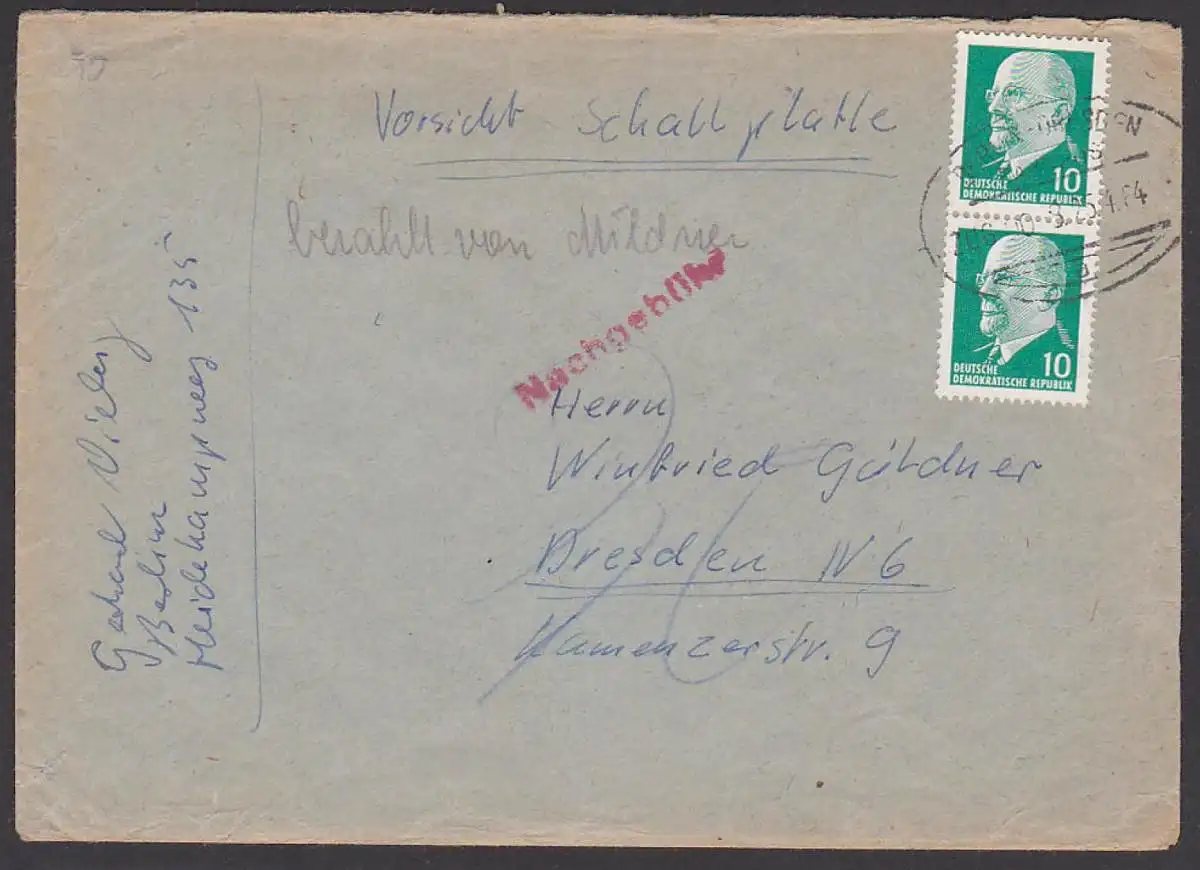 Vorsicht Schallplatte
bezahlt von Mildner
Nachgebühr
Herrn
Winfried Göldner
Dresden N 6
Kamenzerstr. 9
Berlin
Heidekampweg 135
10
DEUTSCHE
DEMOKRATISCHE REPUBLIK
10
DEUTSCHE
DEMOKRATISCHE REPUBLIK
DRESDEN
ZUG